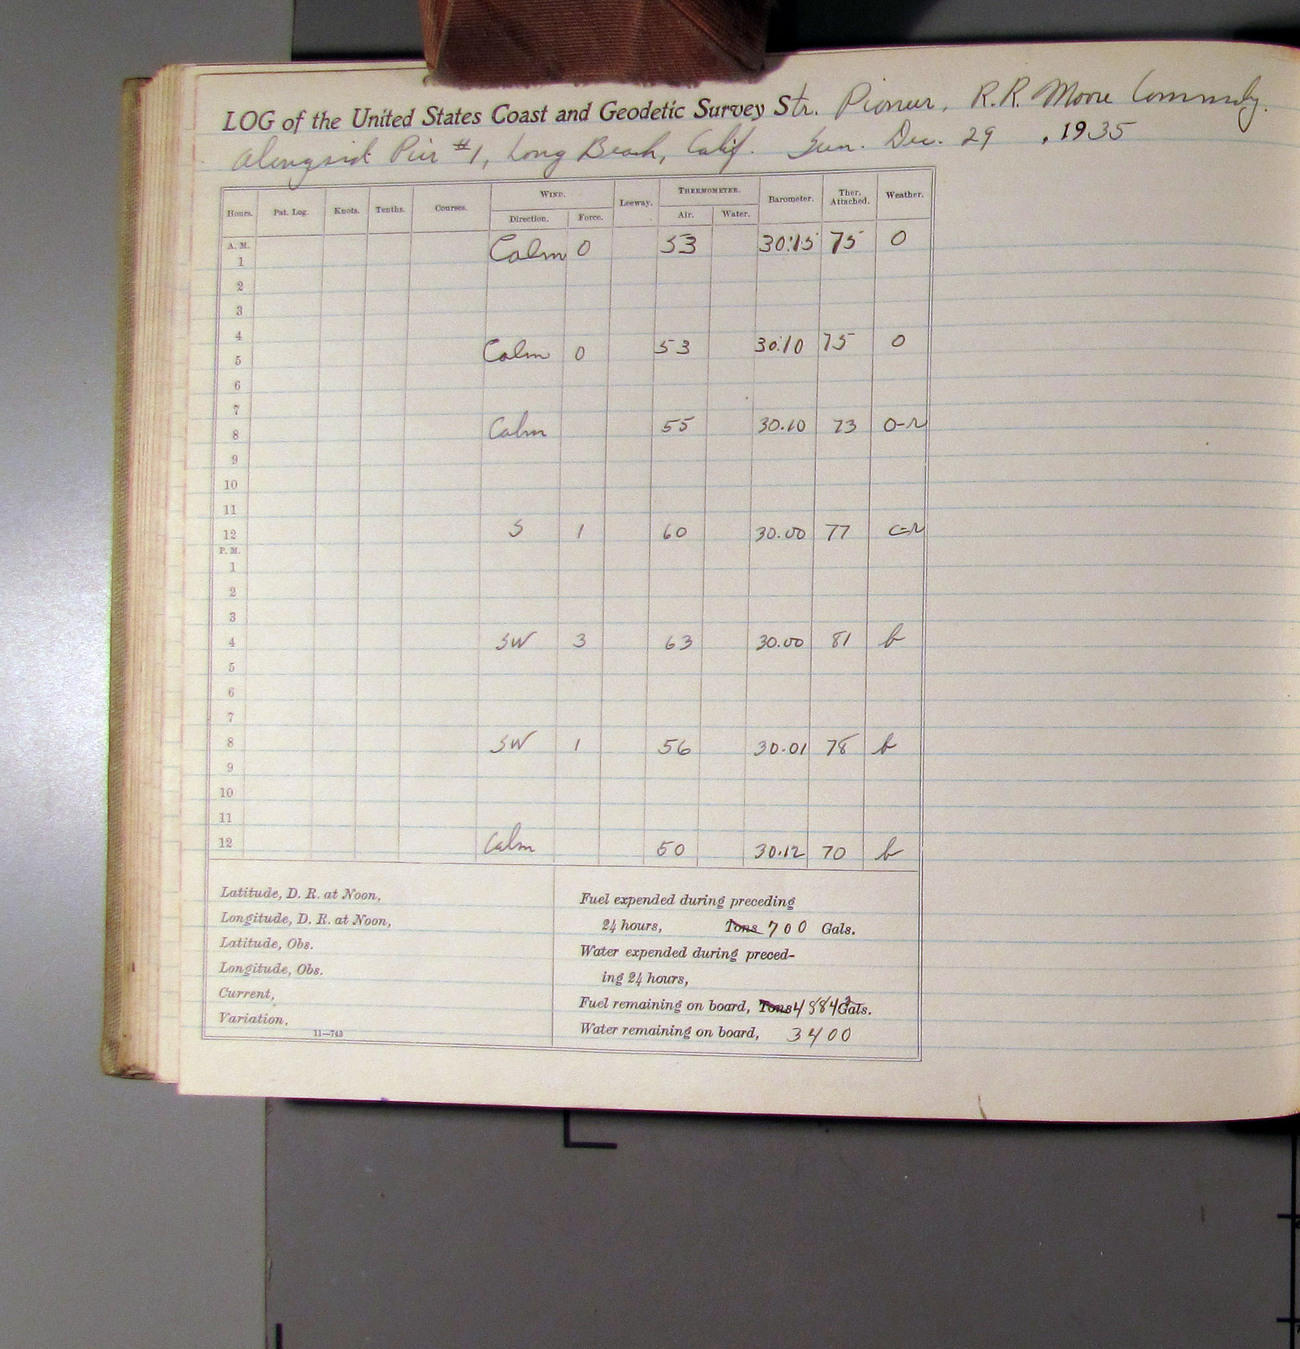 LOG of the United States Coast and Geodetic Survey Str. Pioneer, R.R. Moore Commndg.
Alongside Pier #1, Long Beach, Calif. Sun. Dec. 29, 1935
Hours. Pat. Log. Knots. Tenths. Courses. WIND. Leeway. THERMOMETER. Barometer. Ther. Attached. Weather.
Direction. Force. Air. Water.
A. M.
1 Calm 0 53 30:15 75 0
2
3
4
5 Calm 0 53 30:10 75 0
6
7
8 Calm 55 30.10 73 0-r
9
10
11
12 S 1 60 30.00 77 c=r
P. M.
1
2
3
4 SW 3 63 30.00 81 b
5
6
7
8 SW 1 56 30.01 78 b
9
10
11
12 Calm 50 30.12 70 b
Latitude, D. R. at Noon,
Longitude, D. R. at Noon,
Latitude, Obs.
Longitude, Obs.
Current,
Variation,
11—743
Fuel expended during preceding
24 hours, Tons 700 Gals.
Water expended during preced-
ing 24 hours,
Fuel remaining on board, Tons Gals.
Water remaining on board, 3400